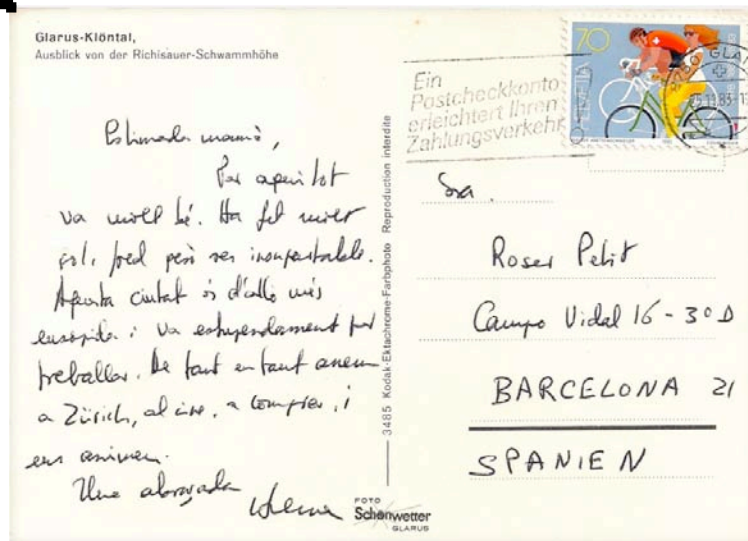 Glarus-Klöntal,
Ausblick von der Richisauer-Schwammhöhe
Estimada mamà,
Per aquí tot
va molt bé. Ha fet molt
sol i fred però res insuportable.
Aquesta ciutat és d'allò més
ensopida i va estupendament per
treballar. De tant en tant anem
a Zürich, al cine, a comprar, i
ens animem.
Una abraçada
3485 Kodak-Ektachrome-Farbphoto Reproduction interdite
FOTO
Schönwetter
GLARUS
Ein
Postcheckkonto
erleichtert Ihren
Zahlungsverkehr
70
HELVETIA
GLAR
Sra.
Roser Petit
Campo Vidal 16 - 3º D
BARCELONA 21
SPANIEN